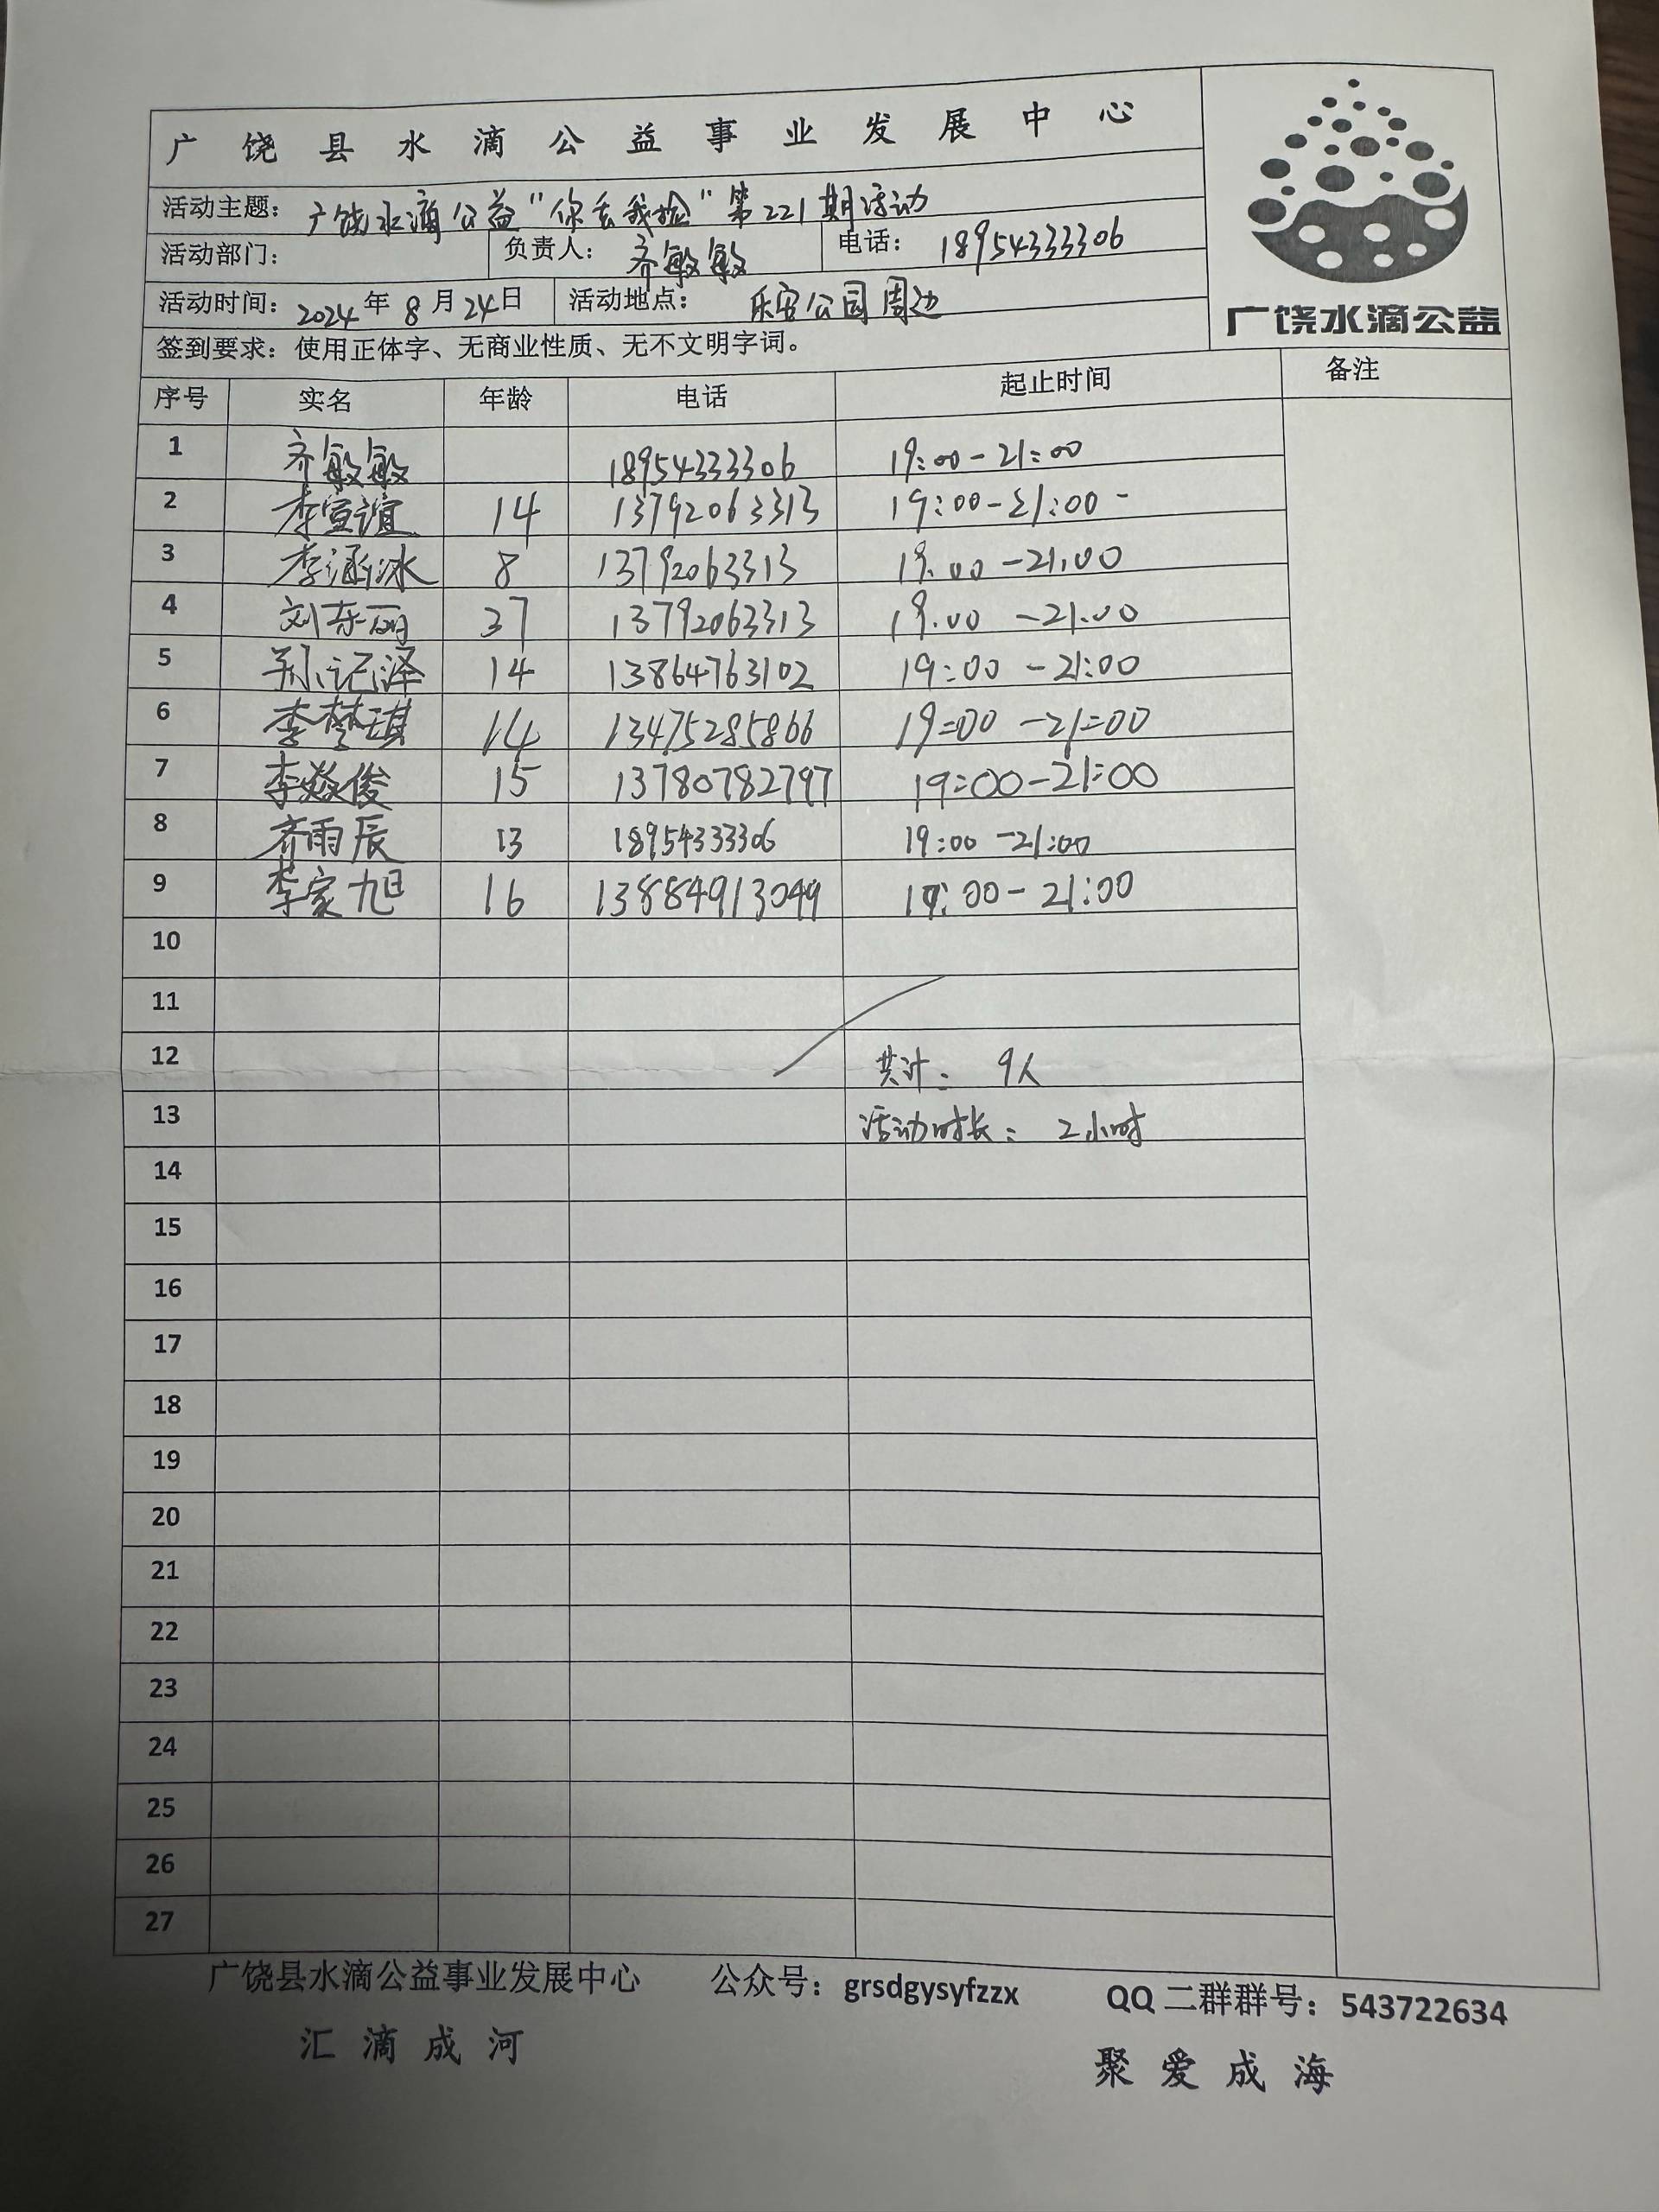 广饶县水滴公益事业发展中心
活动主题：广饶水滴公益"你丢我捡"第221期活动
活动部门： 负责人：齐敏敏 电话：18954333306
活动时间：2024年8月24日 活动地点：乐安公园周边
广饶水滴公益
签到要求：使用正体字、无商业性质、无不文明字词。
序号 实名 年龄 电话 起止时间 备注
1 齐敏敏 18954333306 19:00-21:00
2 李宣谊 14 13792063313 19:00-21:00
3 李涵冰 8 13792063313 19:00-21:00
4 刘东丽 37 13792063313 19:00-21:00
5 泽 14 13864763102 19:00-21:00
6 李梦琪 14 13475285866 19:00-21:00
7 李俊 15 13780782797 19:00-21:00
8 齐雨辰 13 18954333306 19:00-21:00
9 李家旭 16 13884913049 19:00-21:00
10
11
12 共计：9人
13 活动时长：2小时
14
15
16
17
18
19
20
21
22
23
24
25
26
27
广饶县水滴公益事业发展中心 公众号：grsdgysyfzzx QQ二群群号：543722634
汇滴成河 聚爱成海